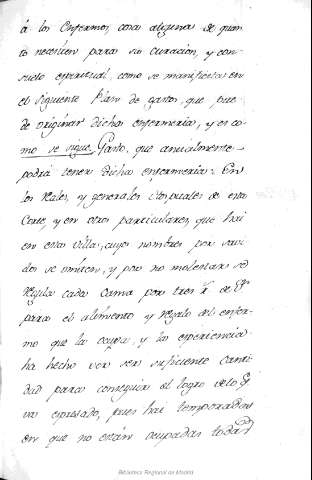 á los Enfermos, cosa alguna de quan
to necesiten para su curacion, y con
suelo espiritual, como se manifiesta en
el siguiente Plan de gastos, que pue
de originar dicha enfermeria, y es co
mo se sigue. Gasto, que anualmente
podrá tener dicha enfermeria: En
los Reales, y generales Hospitales de esta
Corte, y en otros particulares, que hai
en esta villa, cuyos nombres por savi
dos se omiten, y por no molestar se
regula cada Cama por tres rˢ de Vⁿ
para el alimento y regalo del enfer
mo que la ocupa, y la experiencia
ha hecho ver ser suficiente canti
dad para conseguir el logro de lo q
va expresado, pues hai temporadas
en que no están ocupadas todas
Biblioteca Regional de Madrid